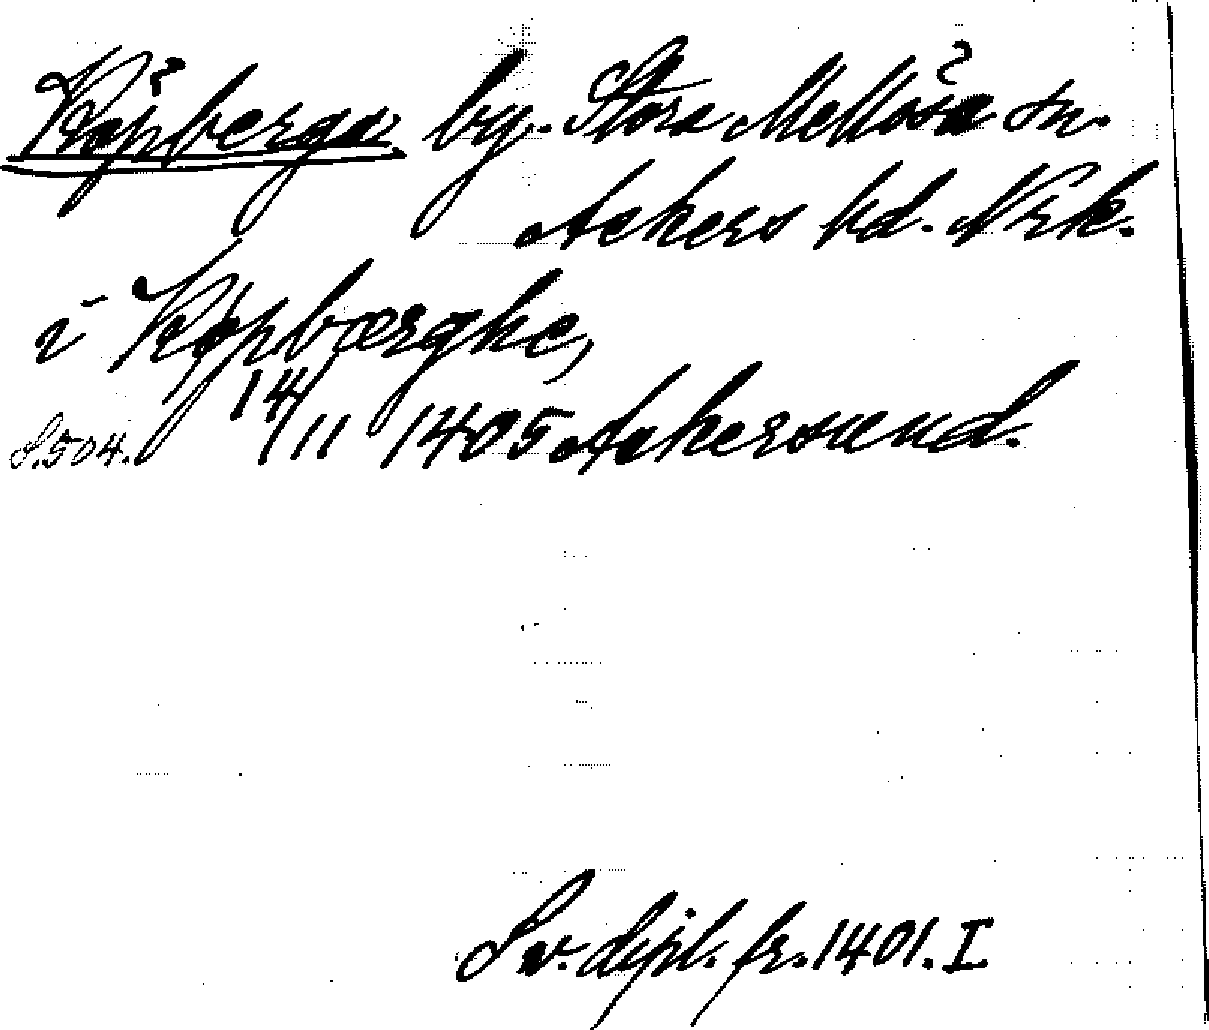 Köpberga by. Stora Mellösa sn.
Askers hd. Nrk.
i Køpbærghe,
S.504. 14/11 1405 Askersund.
Sv. dipl. fr. 1401. I